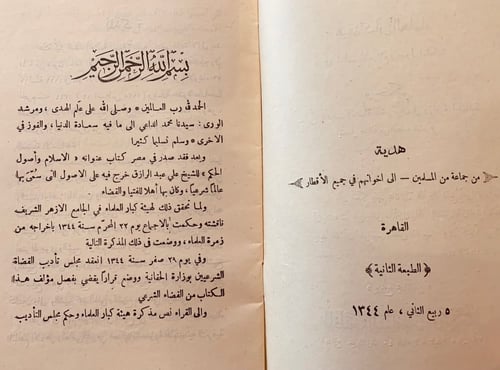 بسم الله الرحمن الرحيم
الحمد لله رب العالمين * وصلى الله على علم الهدى ، ومرشد
الورى : سيدنا محمد الداعي الى ما فيه سعادة الدنيا ، والفوز في
الاخرى * وسلم تسليما كثيرا
وبعد فقد صدر في مصر كتاب عنوانه « الاسلام وأصول
الحكم » للشيخ علي عبد الرازق خرج فيه على الاصول التى سمي بها
عالمًا شرعيًا ، وكان بها أهلا للفتيا والقضاء .
ولما تحقق ذلك لهيئة كبار العلماء في الجامع الازهر الشريف
ناقشته وحكمت بالاجماع يوم ٢٢ المحرّم سنة ١٣٤٤ باخراجه من
زمرة العلماء ، ووضعت في ذلك المذكرة التالية
وفي يوم ٢٩ صفر سنة ١٣٤٤ انعقد مجلس تأديب القضاة
الشرعيين بوزارة الحقانية ووضع قرارًا يقضي بفصل مؤلف هذا
الكتاب من القضاء الشرعي
والى القراء نص مذكرة هيئة كبار العلماء وحكم مجلس التأديب
هدية
﴿ من جماعة من المسلمين — الى اخوانهم في جميع الأقطار ﴾
القاهرة
﴿ الطبعة الثانية ﴾
٥ ربيع الثاني ، عام ١٣٤٤